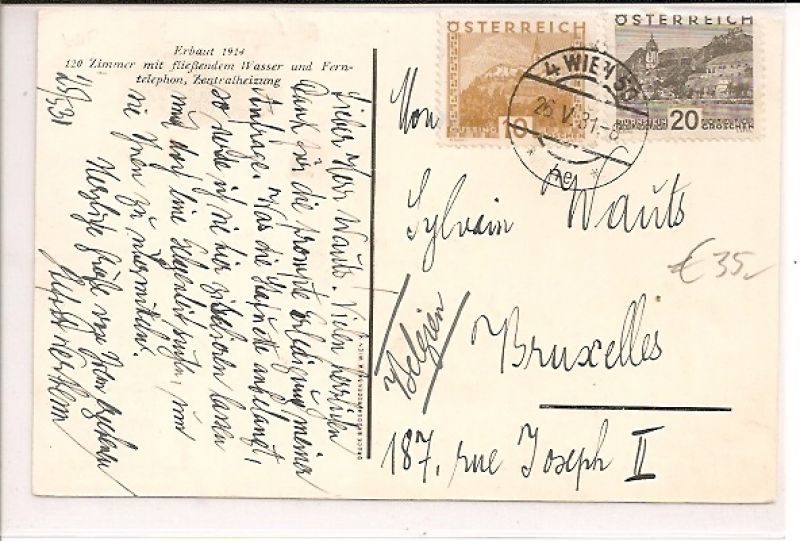 Erbaut 1914
120 Zimmer mit fließendem Wasser und Fern-
telephon, Zentralheizung
25/5 31
Lieber Herr Wauts. Vielen herzlichen
Dank für die prompte Erledigung meiner
Anfrage. Was die Hefte anbelangt,
so werde ich sie hier
und dort eine Gelegenheit suchen, um
sie Ihnen zu übermitteln.
Herzliche Grüße von Ihrem ergebenen
ÖSTERREICH
GÜSSING
10
ÖSTERREICH
DÜRNSTEIN
20
GROSCHEN
4 WIEN 50
26.V.31.-8
* *
Mon
Sylvain Wauts
Bruxelles
Belgien
187, rue Joseph II
€ 35,-